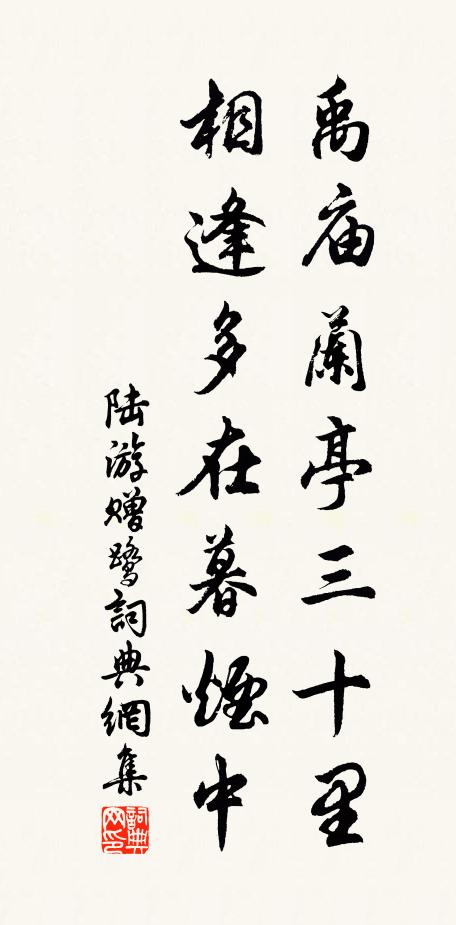 禹庙蘭亭三十里
相逢多在暮煙中
陆游赠鹭詞典網集
詞典网印